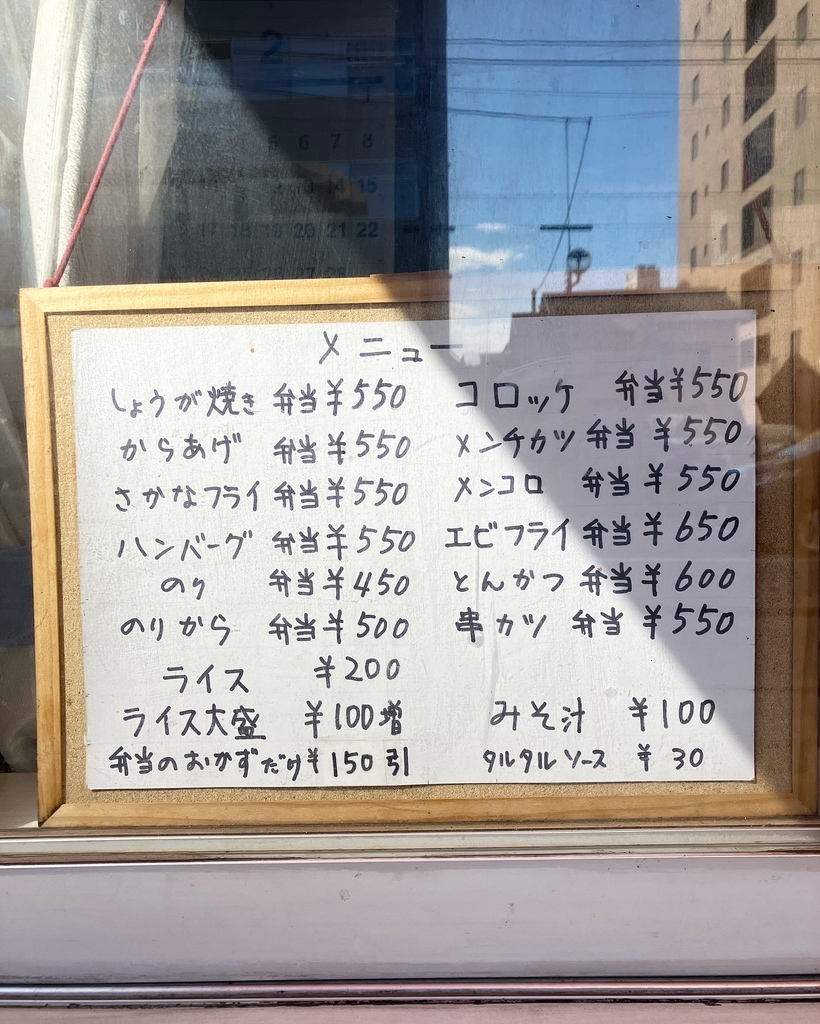 2
1
5 6 7 8
13 14 15
17 18 19 20 21 22
26 27 28
メニュー
しょうが焼き 弁当 ¥550
からあげ 弁当 ¥550
さかなフライ 弁当 ¥550
ハンバーグ 弁当 ¥550
のり 弁当 ¥450
のりから 弁当 ¥500
ライス ¥200
ライス大盛 ¥100増
弁当のおかずだけ ¥150引
コロッケ 弁当 ¥550
メンチカツ 弁当 ¥550
メンコロ 弁当 ¥550
エビフライ 弁当 ¥650
とんかつ 弁当 ¥600
串カツ 弁当 ¥550
みそ汁 ¥100
タルタルソース ¥30